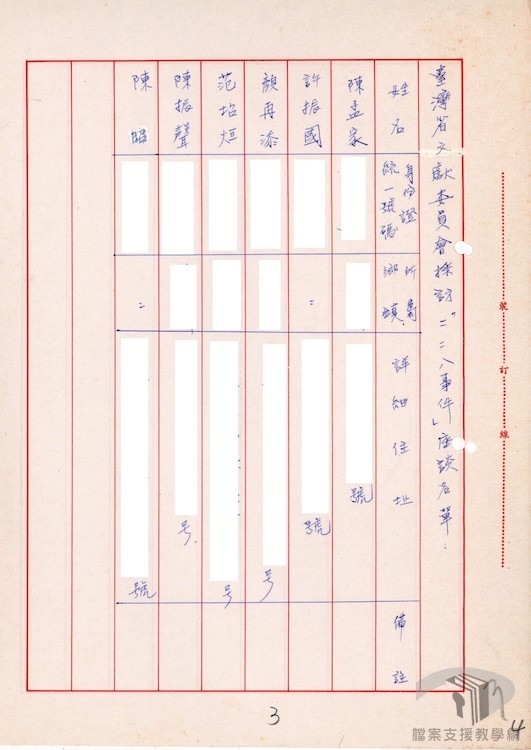 臺灣省文獻委員會採訪"二二八事件"座談名單:
姓名 身份證統一號碼 所屬鄉鎮 詳細住址 備註
陳孟家 號
許振國 〃 號
顏再添 号
范焰烜 号
陳振聲 号.
陳昭 〃 號
裝訂線
3
4
檔案支援教學網